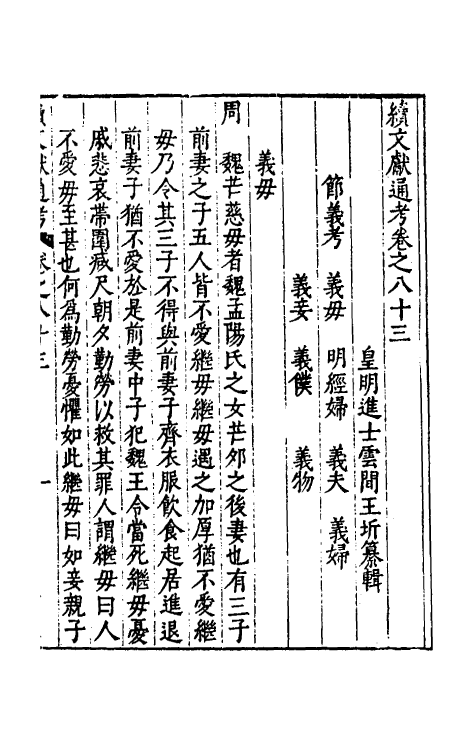 續文獻通考卷之八十三
皇明進士雲間王圻纂輯
節義考 義母 明經婦 義夫 義婦
義妾 義僕 義物
義母
周 魏芒慈母者魏孟陽氏之女芒夘之後妻也有三子
前妻之子五人皆不愛繼母繼母遇之加厚猶不愛繼
母乃令其三子不得與前妻子齊衣服飲食起居進退
前妻子猶不愛於是前妻中子犯魏王令當死繼母憂
戚悲哀帶圍減尺朝夕勤勞以救其罪人謂繼母曰人
不愛母至甚也何為勤勞憂懼如此繼母曰如妾親子
文獻通考 卷之八十三 一